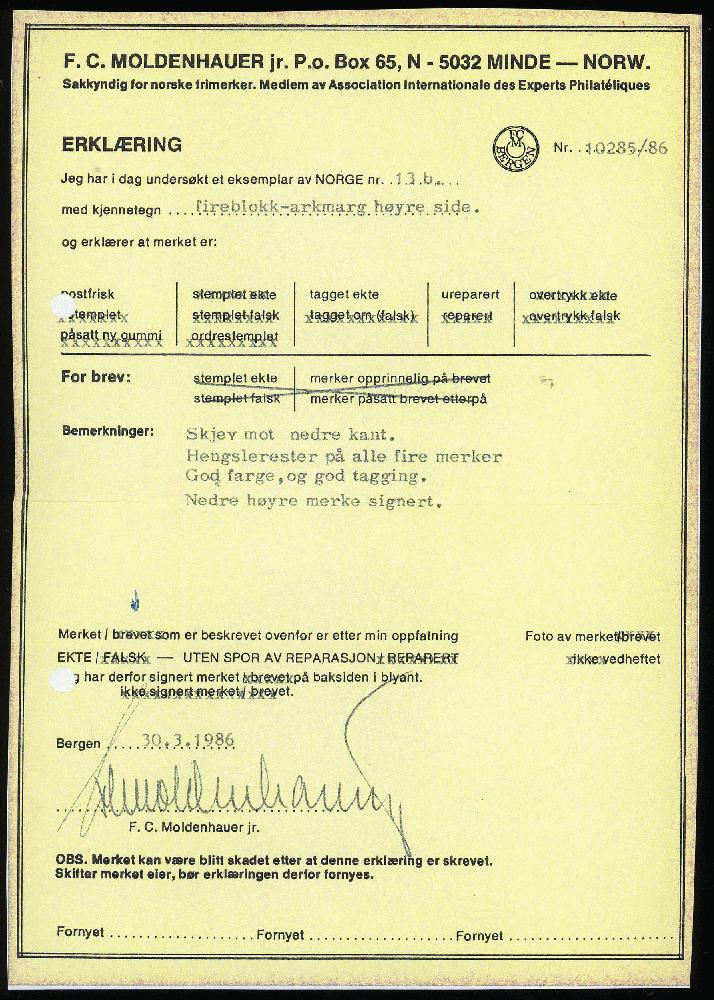 F. C. MOLDENHAUER jr. P.o. Box 65, N - 5032 MINDE — NORW.
Sakkyndig for norske frimerker. Medlem av Association Internationale des Experts Philatéliques
ERKLÆRING
FCM BERGEN
Nr. 10285/86
Jeg har i dag undersøkt et eksemplar av NORGE nr. 13.b.
med kjennetegn fireblokk-arkmarg høyre side.
og erklærer at merket er:
postfrisk stemplet ekte tagget ekte ureparert overtrykk ekte
stemplet stemplet falsk tagget om (falsk) reparert overtrykk falsk
påsatt ny gummi ordrestemplet
For brev: stemplet ekte merker opprinnelig på brevet
stemplet falsk merker påsatt brevet etterpå
Bemerkninger: Skjev mot nedre kant.
Hengslerester på alle fire merker
God farge, og god tagging.
Nedre høyre merke signert.
Merket / brevet som er beskrevet ovenfor er etter min oppfatning Foto av merket/brevet
EKTE / FALSK — UTEN SPOR AV REPARASJON / REPARERT ikke vedheftet
g har derfor signert merket / brevet på baksiden i blyant.
ikke signert merket / brevet.
Bergen 30.3.1986
F. C. Moldenhauer jr.
OBS. Merket kan være blitt skadet etter at denne erklæring er skrevet.
Skifter merket eier, bør erklæringen derfor fornyes.
Fornyet Fornyet Fornyet